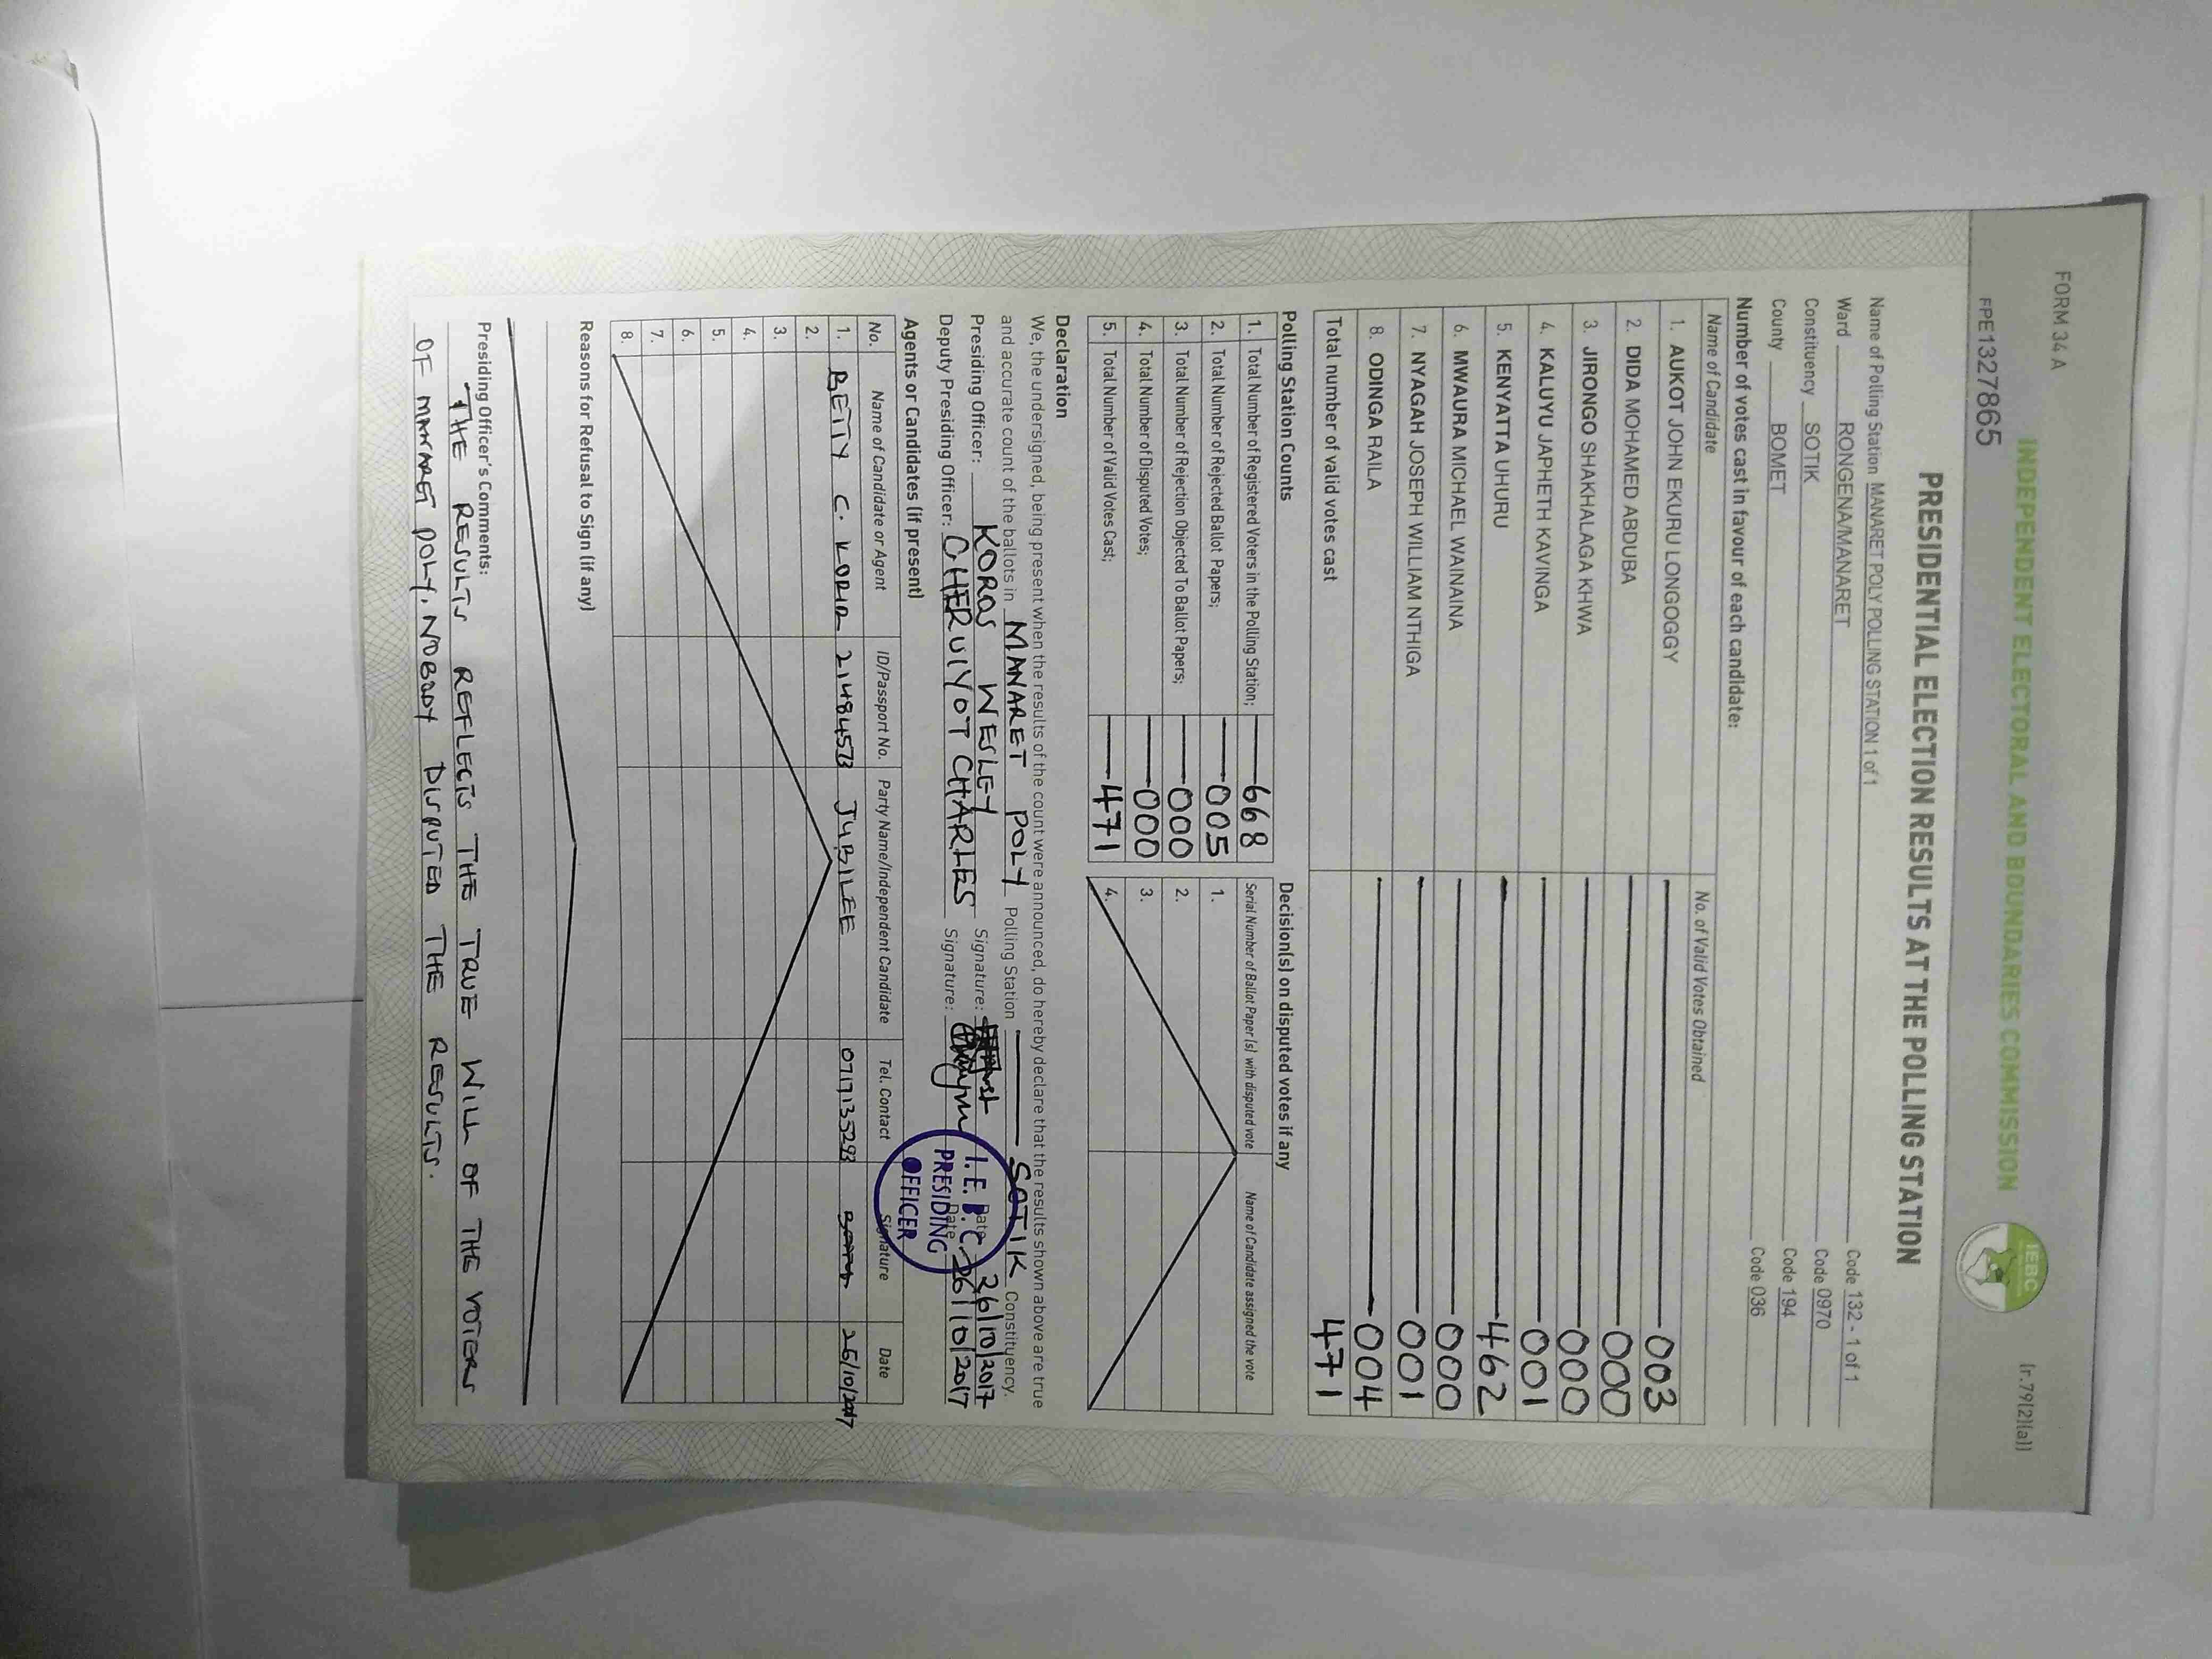 FORM 34 A
(r.79(2)(a))
INDEPENDENT ELECTORAL AND BOUNDARIES COMMISSION
IEBC
FPE1327865
PRESIDENTIAL ELECTION RESULTS AT THE POLLING STATION
Name of Polling Station MANARET POLY POLLING STATION 1 of 1 Code 132 - 1 of 1
Ward RONGENA/MANARET Code 0970
Constituency SOTIK Code 194
County BOMET Code 036
Number of votes cast in favour of each candidate:
Name of Candidate No. of Valid Votes Obtained
1. AUKOT JOHN EKURU LONGOGGY 003
2. DIDA MOHAMED ABDUBA 000
3. JIRONGO SHAKHALAGA KHWA 000
4. KALUYU JAPHETH KAVINGA 001
5. KENYATTA UHURU 462
6. MWAURA MICHAEL WAINAINA 000
7. NYAGAH JOSEPH WILLIAM NTHIGA 001
8. ODINGA RAILA 004
Total number of valid votes cast 471
Polling Station Counts
1. Total Number of Registered Voters in the Polling Station; 668
2. Total Number of Rejected Ballot Papers; 005
3. Total Number of Rejection Objected To Ballot Papers; 000
4. Total Number of Disputed Votes; 000
5. Total Number of Valid Votes Cast; 471
Decision(s) on disputed votes if any
Serial Number of Ballot Paper(s) with disputed vote Name of Candidate assigned the vote
1.
2.
3.
4.
Declaration
We, the undersigned, being present when the results of the count were announced, do hereby declare that the results shown above are true
and accurate count of the ballots in MANARET POLY Polling Station SOTIK Constituency.
Presiding Officer: KOROS WESLEY Signature: Date 26/10/2017
Deputy Presiding Officer: CHERUIYOT CHARLES Signature: Date 26/10/2017
I.E.B.C
PRESIDING
OFFICER
Agents or Candidates (if present)
No. Name of Candidate or Agent ID/Passport No. Party Name/Independent Candidate Tel. Contact Signature Date
1. BETTY C. KORIR 21484573 JUBILEE 0717135293 26/10/2017
2.
3.
4.
5.
6.
7.
8.
Reasons for Refusal to Sign (if any)
Presiding Officer's Comments:
THE RESULTS REFLECTS THE TRUE WILL OF THE VOTERS
OF MANARET POLY. NOBODY DISPUTED THE RESULTS.